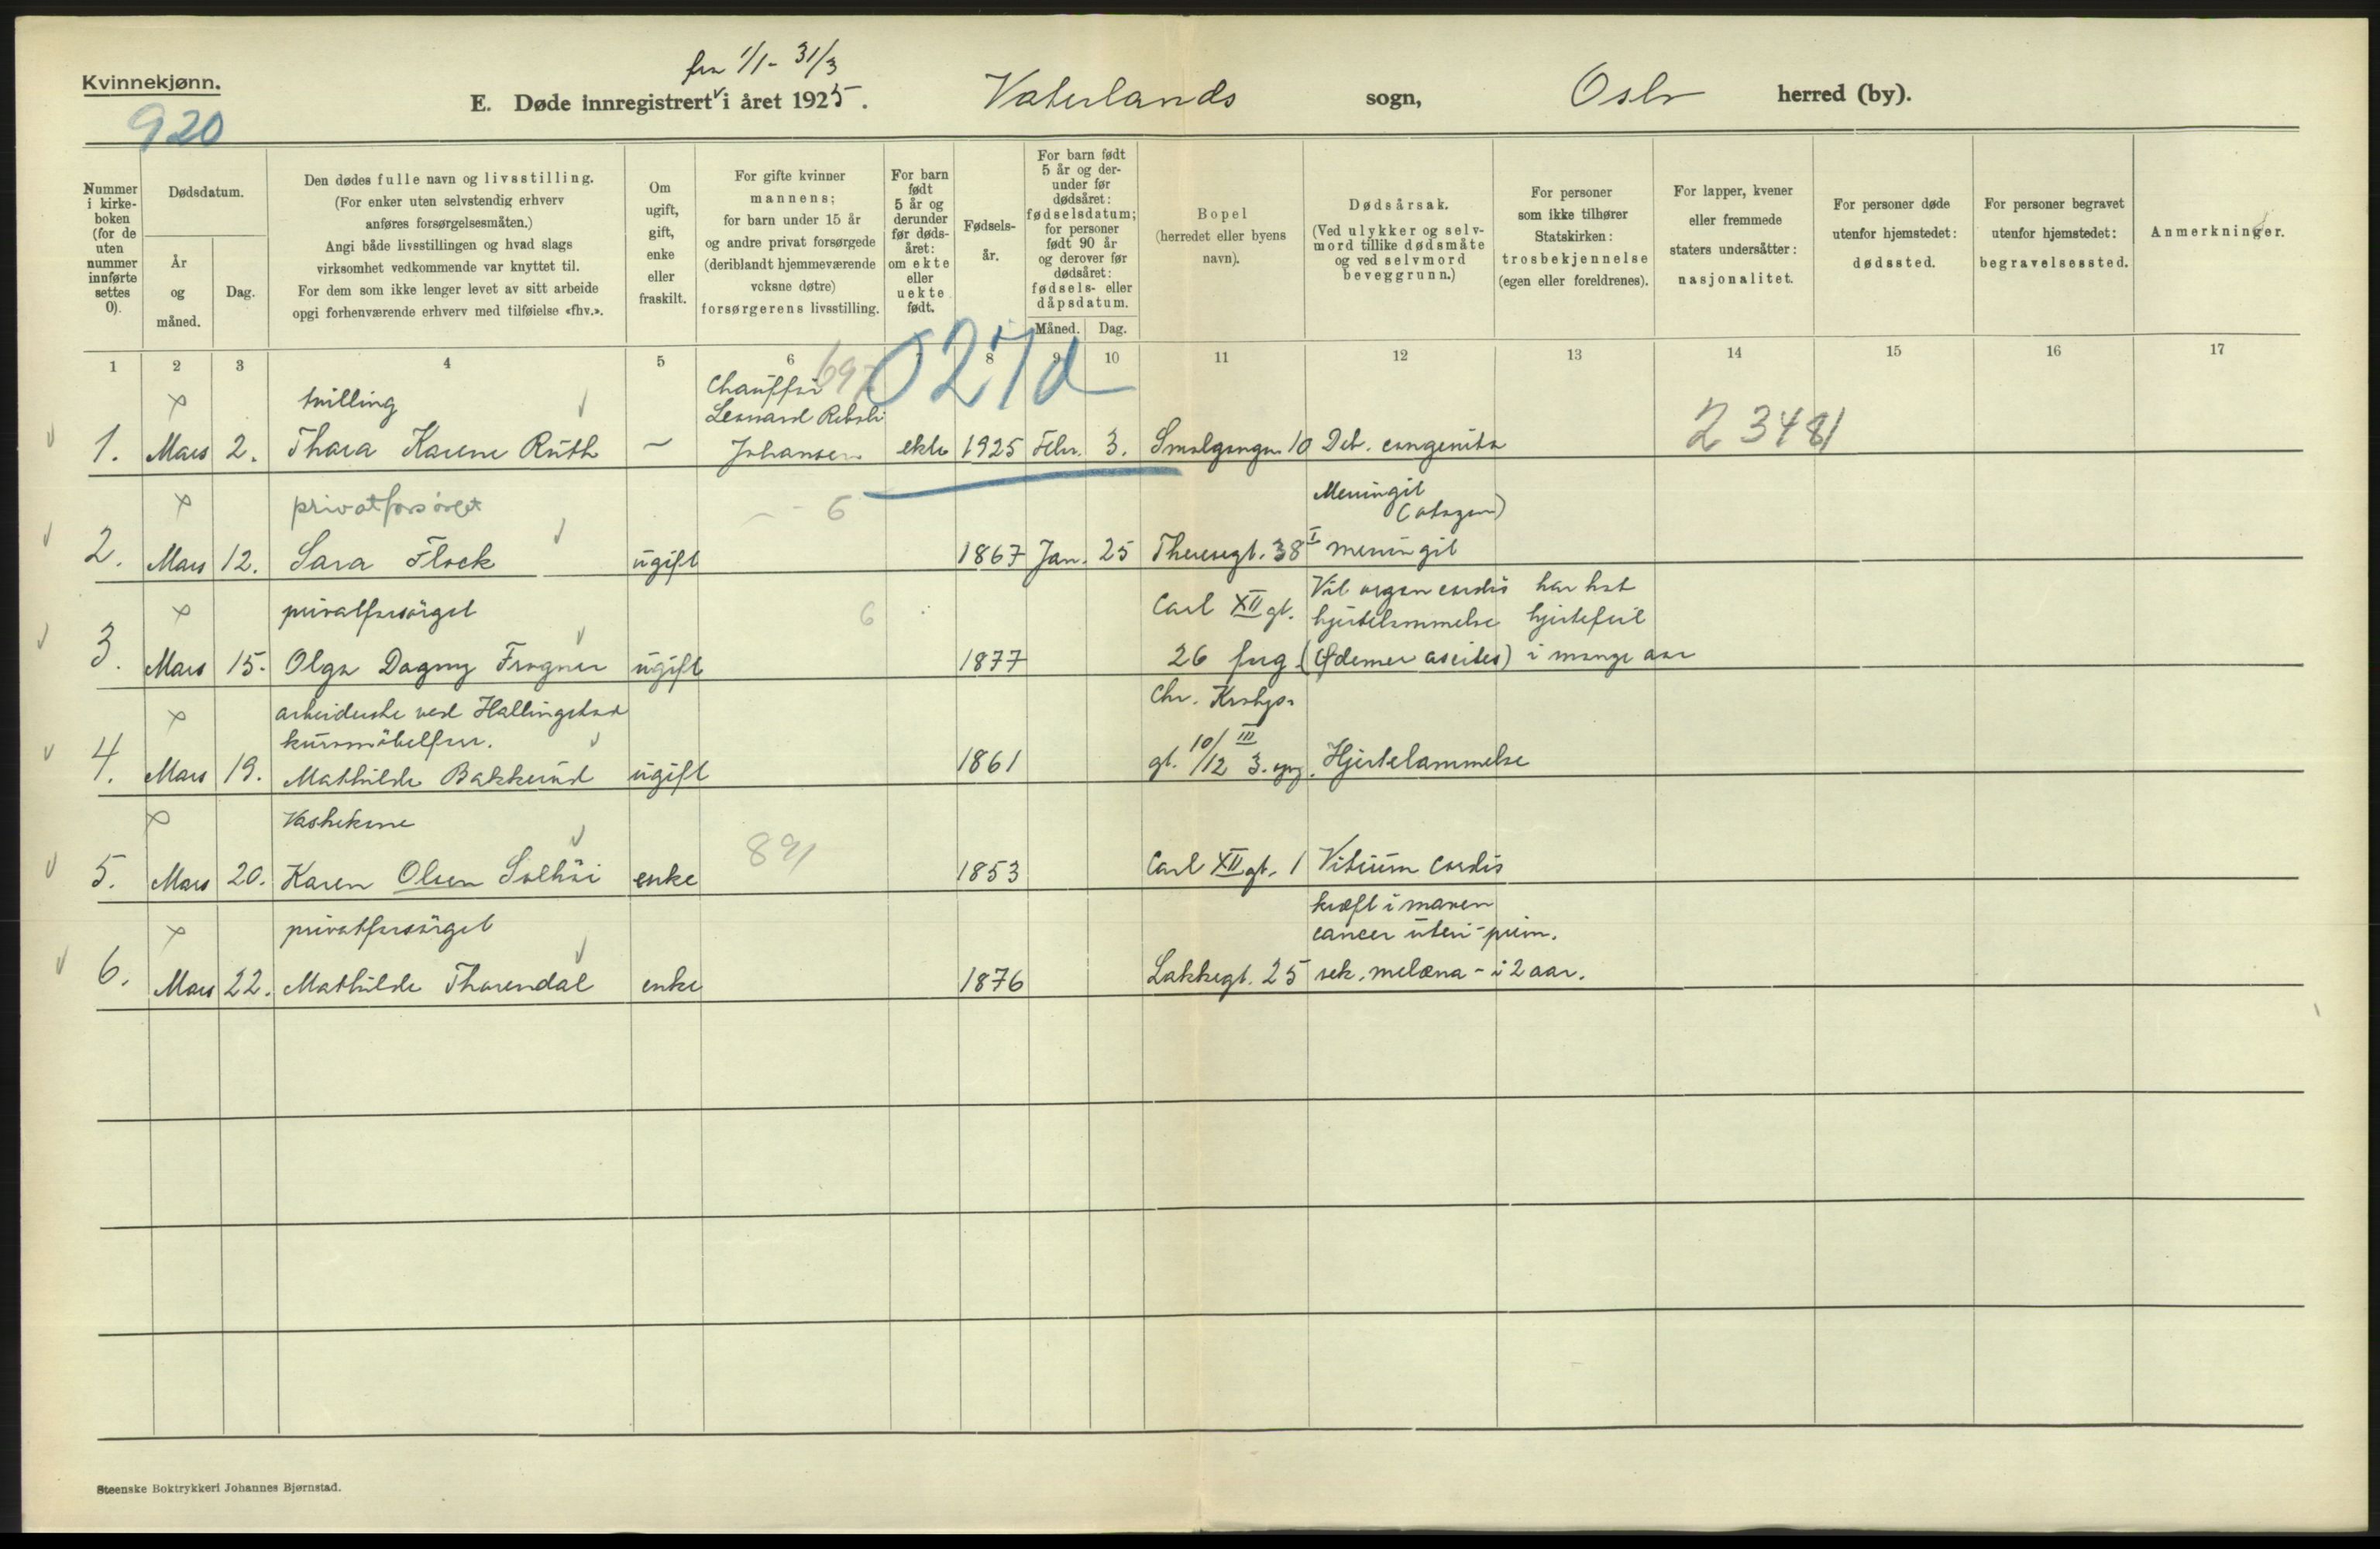 Kvinnekjønn.
920
fra 1/1 - 31/3
E. Døde innregistrert i året 1925.
Vaterlands sogn,
Oslo herred (by).
Nummer i kirke- boken (for de uten nummer innførte settes 0).
Dødsdatum.
År og måned.
Dag.
Den dødes fulle navn og livsstilling.
(For enker uten selvstendig erhverv
anføres forsørgelsesmåten.)
Angi både livsstillingen og hvad slags
virksomhet vedkommende var knyttet til.
For dem som ikke lenger levet av sitt arbeide
opgi forhenværende erhverv med tilføielse «fhv.».
Om ugift, gift, enke eller fraskilt.
For gifte kvinner
mannens;
for barn under 15 år
og andre privat forsørgede
(deriblandt hjemmeværende
voksne døtre)
forsørgerens livsstilling.
For barn født 5 år og derunder før døds- året: om ekte eller uekte født.
Fødsels- år.
For barn født 5 år og der- under før dødsåret: fødselsdatum; for personer født 90 år og derover før dødsåret: fødsels- eller dåpsdatum.
Måned. Dag.
Bopel
(herredet eller byens
navn).
Dødsårsak.
(Ved ulykker og selv-
mord tillike dødsmåte
og ved selvmord
beveggrunn.)
For personer
som ikke tilhører
Statskirken:
trosbekjennelse
(egen eller foreldrenes).
For lapper, kvener
eller fremmede
staters undersåtter:
nasjonalitet.
For personer døde
utenfor hjemstedet:
dødssted.
For personer begravet
utenfor hjemstedet:
begravelsessted.
Anmerkninger.
1 2 3 4 5 6 8 9 10 11 12 13 14 15 16 17
027d
× tvilling Chauffør
Leonard
1. Mars 2. Thora Karene Ruth — Johansen ekte 1925 Febr. 3. Smalgangen 10 Deb. congenita
23481
× privatforsørget 6 Meningit
(otogen)
2. Mars 12. Sara Flock ugift 1867 Jan. 25 Theresegt. 38 I meningit
× privatforsørget 6 Carl XII gt. Vit. organ cordis har hat
hjertelammelse hjertefeil
3. Mars 15. Olga Dagny Frogner ugift 1877 26 (Ødemer ascites) i mange aar
× arbeiderske ved Hallingstad Chr. Krohgs-
kurvmöbelforr.
4. Mars 19. Mathilde Bakkerud ugift 1861 gt. 10/12 III 3. opg. Hjertelammelse
× Vaskekone
891
5. Mars 20. Karen Olsen Solhöi enke 1853 Carl XII gt. 1 Vitium cordis
× privatforsørget kræft i maven
cancer uteri - prim.
6. Mars 22. Mathilde Thorendal enke 1876 Lakkegt. 25 sek. melæna - i 2 aar.
Steenske Boktrykkeri Johannes Bjørnstad.